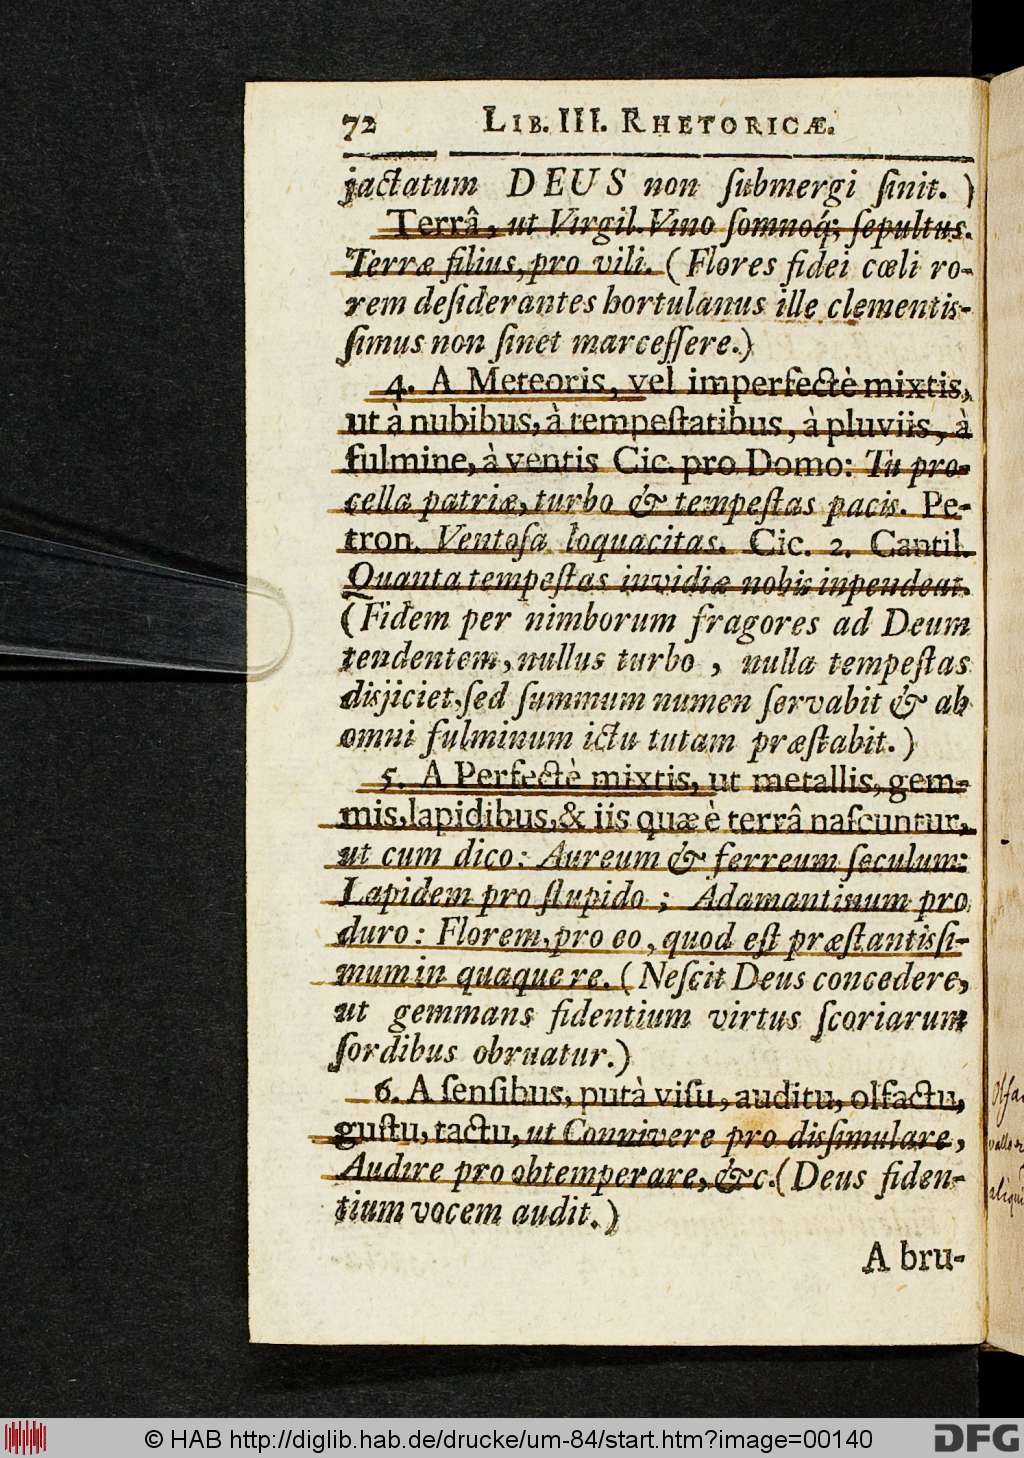 72 LIB. III. RHETORICÆ.
jactatum DEUS non ſubmergi ſinit. )
Terrâ, ut Virgil. Vino ſomnoq́; ſepultus.
Terræ filius, pro vili. ( Flores fidei cœli ro-
rem deſiderantes hortulanus ille clementis-
ſimus non ſinet marceſſere.)
4. A Meteoris, vel imperfectè mixtis,
ut à nubibus, à tempeſtatibus, à pluviis, à
fulmine, à ventis Cic. pro Domo: Tu pro-
cella patriæ, turbo & tempeſtas pacis. Pe-
tron. Ventoſa loquacitas. Cic. 2. Cantil.
Quanta tempeſtas invidiæ nobis inpendeat.
(Fidem per nimborum fragores ad Deum
tendentem, nullus turbo , nulla tempeſtas
disjiciet, ſed ſummum numen ſervabit & ab
omni fulminum ictu tutam præſtabit. )
5. A Perfectè mixtis, ut metallis, gem-
mis, lapidibus, & iis quæ è terrâ naſcuntur,
ut cum dico: Aureum & ferreum ſeculum:
Lapidem pro ſtupido ; Adamantinum pro
duro: Florem, pro eo, quod eſt præſtantisſi-
mum in quaque re. ( Neſcit Deus concedere,
ut gemmans fidentium virtus ſcoriarum
ſordibus obruatur.)
6. A ſenſibus, putà viſu, auditu, olfactu,
guſtu, tactu, ut Connivere pro disſimulare,
Audire pro obtemperare, &c. (Deus fiden-
tium vocem audit.)
A bru-
© HAB http://diglib.hab.de/drucke/um-84/start.htm?image=00140
DFG